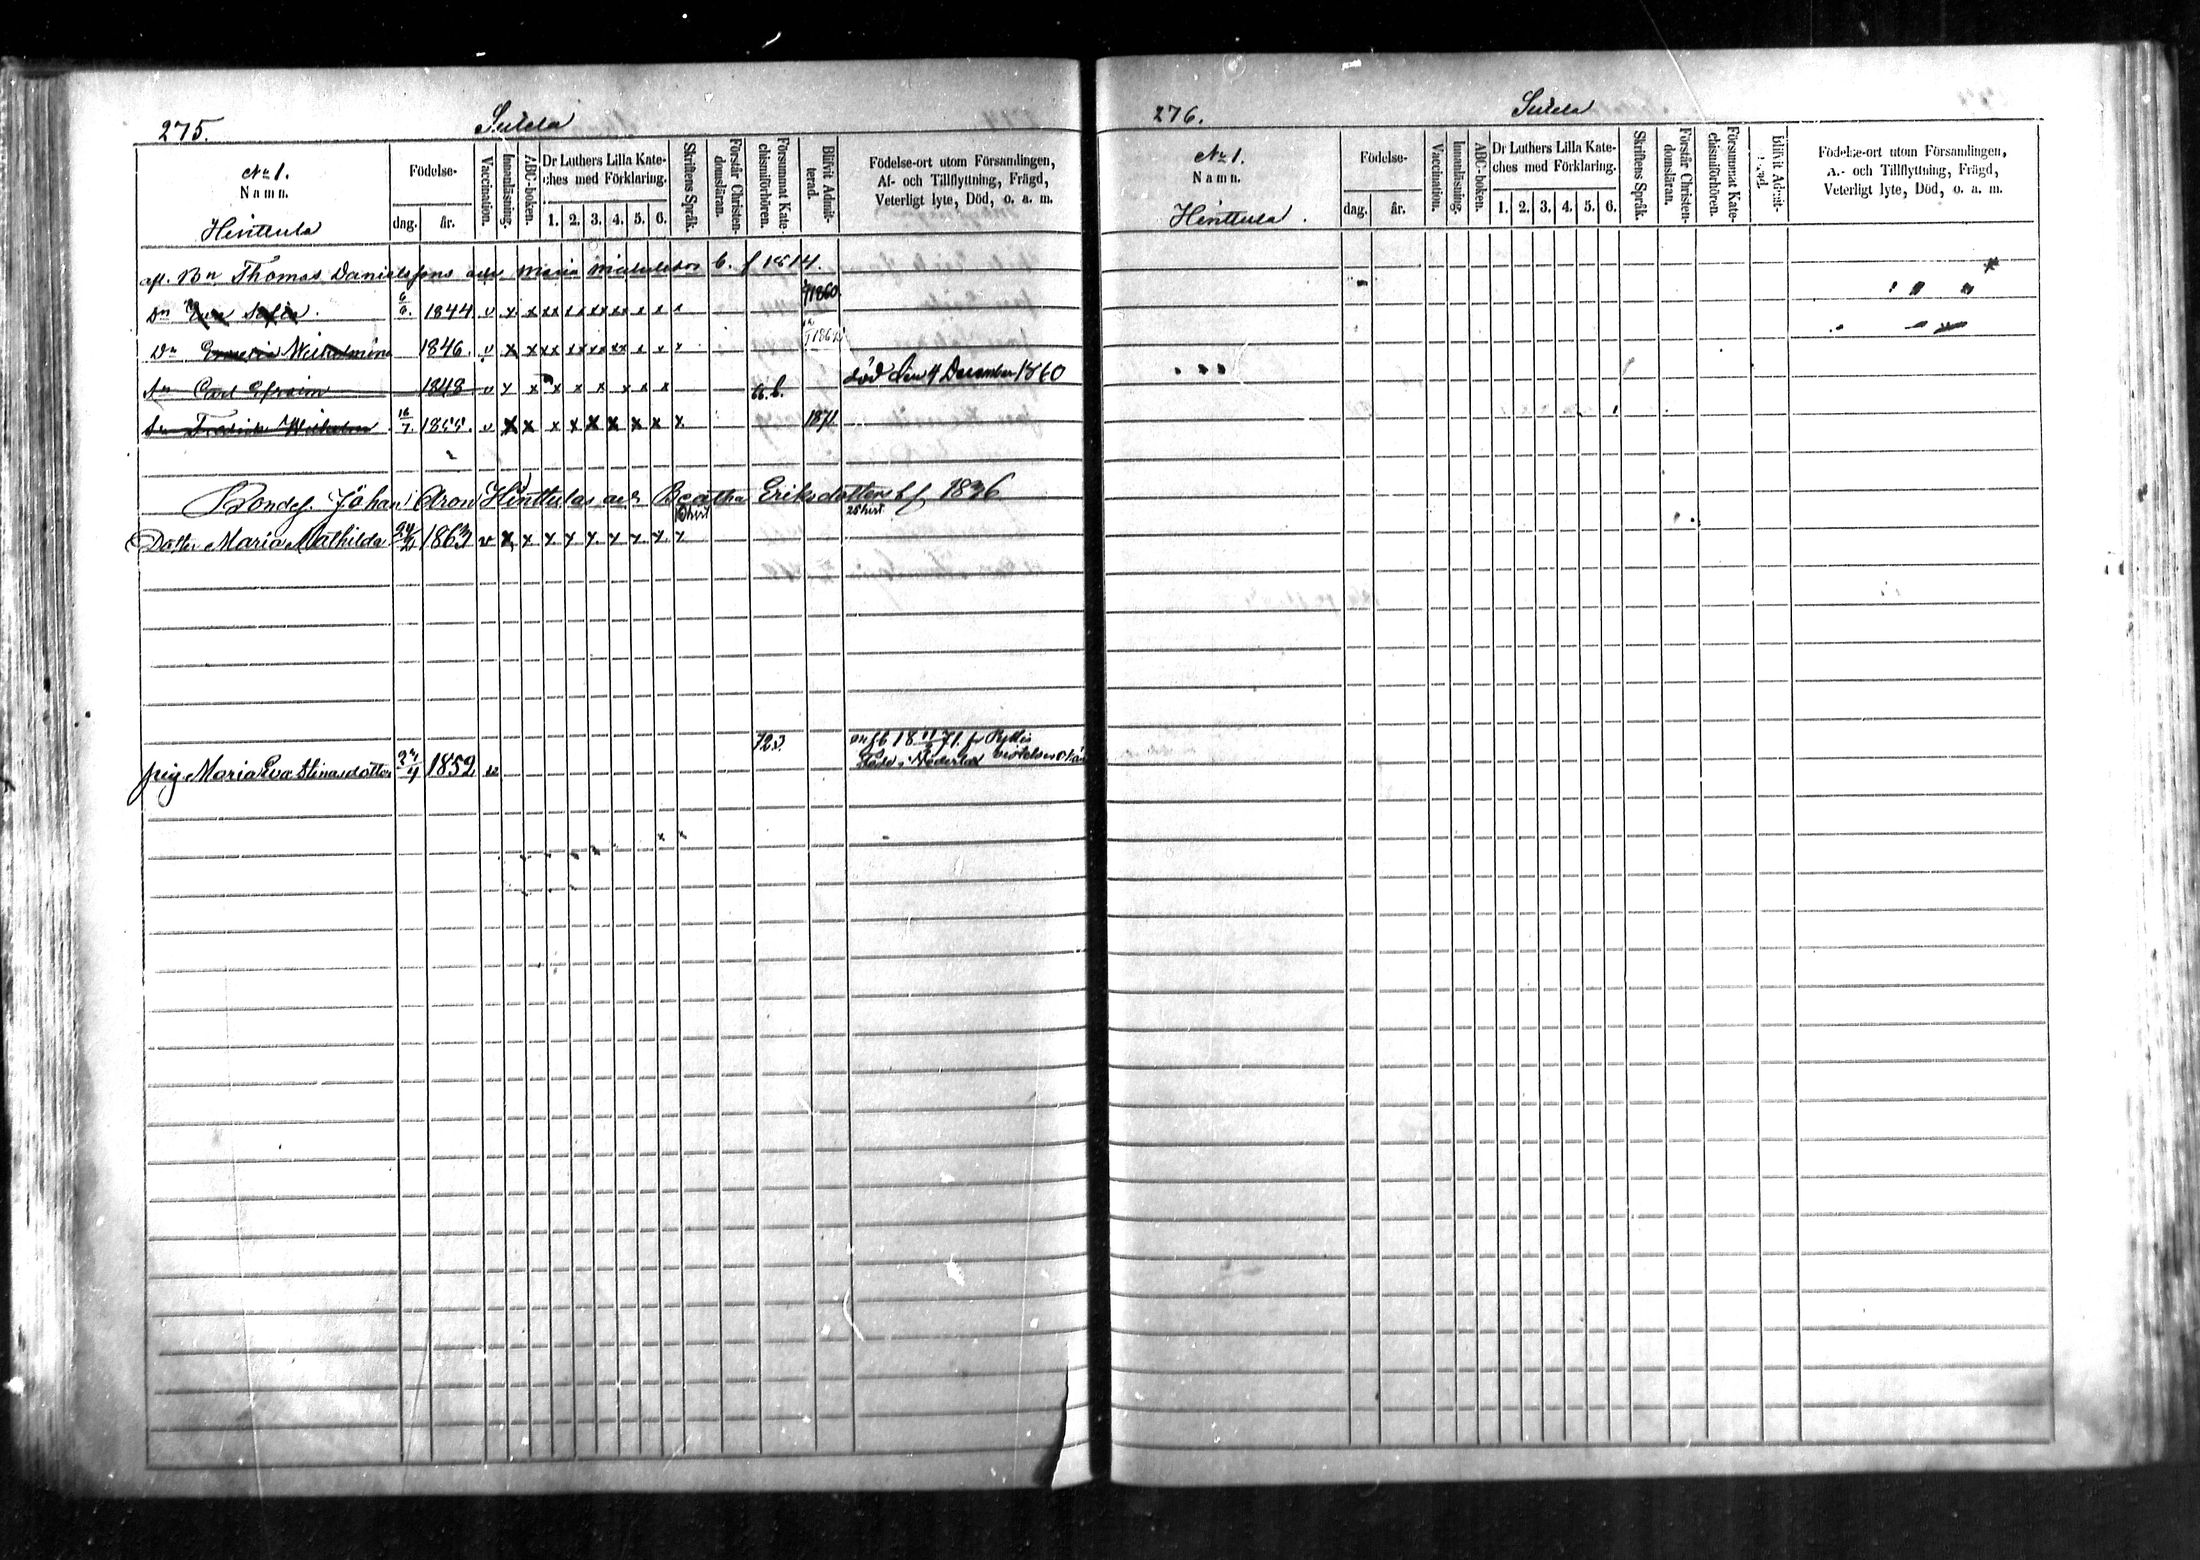 275.
Sulila
No 1.
Namn.
Hinttula
Födelse-
dag.
år.
Vaccination.
Innanläsning.
ABC-boken.
Dr Luthers Lilla Kate-
ches med Förklaring.
1. 2. 3. 4. 5. 6.
Skriftens Språk.
Förstår Christen-
domsläran.
Försummat Kate-
chismiförhören.
Blifvit Admit-
terad.
Födelse-ort utom Församlingen,
Af- och Tillflyttning, Frägd,
Veterligt lyte, Död, o. a. m.
afl. Bn Thomas Danielsfons och Maria b. f 1814.
Dr Eva Sofia. 6/6. 1844 v x x xx xx xx xx x x x 1860
Dr Wilhelmina 1846. v x x xx xx xx xx x x x
Sn Carl Efraim 1848 v x x x x x x x x 66. b. död den 4 December 1860
Sn Fredrik Wilhelm 16/7. v x x x x x x x x x 1871
Bondef. Johan Aron Hinttulas och Beatha Eriksdotters b f. 1836
Dotter Maria Mathilda 1863 v x x x x x x x x x
72.
pig. Maria Eva Stinasdotter 1852
276.
Sulila
No 1.
Namn.
Hinttula.
Födelse-
dag.
år.
Vaccination.
Innanläsning.
ABC-boken.
Dr Luthers Lilla Kate-
ches med Förklaring.
1. 2. 3. 4. 5. 6.
Skriftens Språk.
Förstår Christen-
domsläran.
Försummat Kate-
chismiförhören.
Blifvit Admit-
Födelse-ort utom Församlingen,
A.- och Tillflyttning, Frägd,
Veterligt lyte, Död, o. a. m.